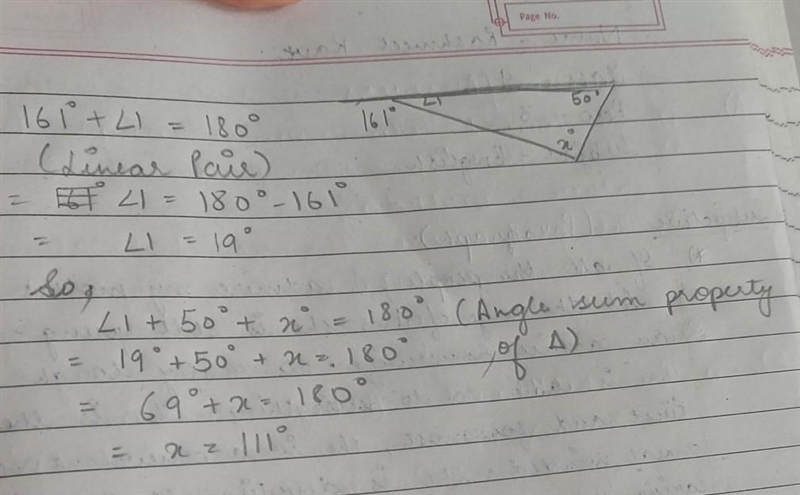 Page No.
161° + ∠1 = 180°
(Linear Pair)
= ∠1 = 180° - 161°
= ∠1 = 19°
161°
∠1
50°
x°
So,
∠1 + 50° + x° = 180° (Angle sum property
of Δ)
= 19° + 50° + x = 180°
= 69° + x = 180°
= x = 111°